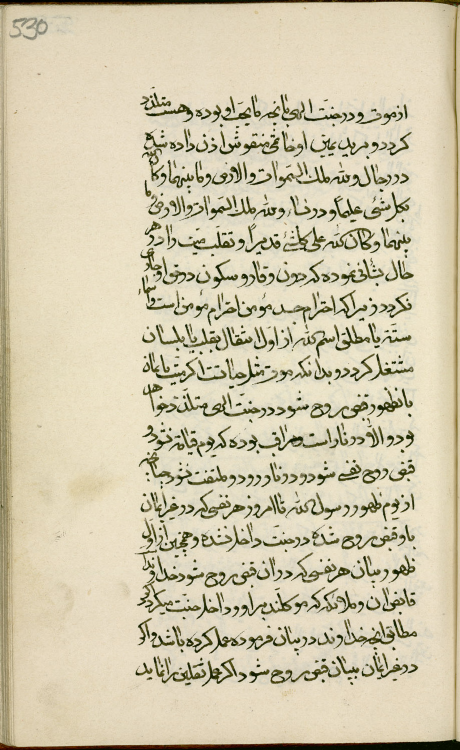 530
از موت و در جنت الهی بانچه مایحب او بوده و هست متلذذ
گردد و بر ید یمین او خاتمی منقوش اذن داده شده که
در رجال ولله ملک السموات والارض وما بینهما وکان الله
بکل شیء علیما و در نساء ولله ملک السموات والارض وما
بینهما وکان الله علی کلشیء قدیرا و تقلیب میت را در هر
حال بشانی نموده که دون وقار و سکون در خوا و جاری
نکردد زیرا که احترام جسد مومن احترام مومن است و اسماء
سته یا مطلق اسم الله از اول اشتغال بقلب یا بلسان
مشتغل کردد و بدانکه موت مثل حیاتست اکر میت بایمان
بانظهور قبض روح شود در جنت الهی متلذذ خواهد
بود و الا در نار است و مراقب بوده که یوم قیامة نشود و
قبض روح نفسی شود و در نار رود و ملتفت نشود چنانچه
از یوم ظهور رسول الله تا امروز هر نفسی که در غیر ایمان
باو قبض روح شده در جنت داخل نشده و همچنین از اول
ظهور بیان هر نفسی که در ان قبض روح شود خداوند
قابض ان و ملائکه که موکلند بر او و داخل جنت میکردد اگر
مطابق انچه خداوند در بیان فرموده عمل کرده باشد و اکر
در غیر ایمان ببیان قبض روح شود اکر عمل ثقلین را نماید